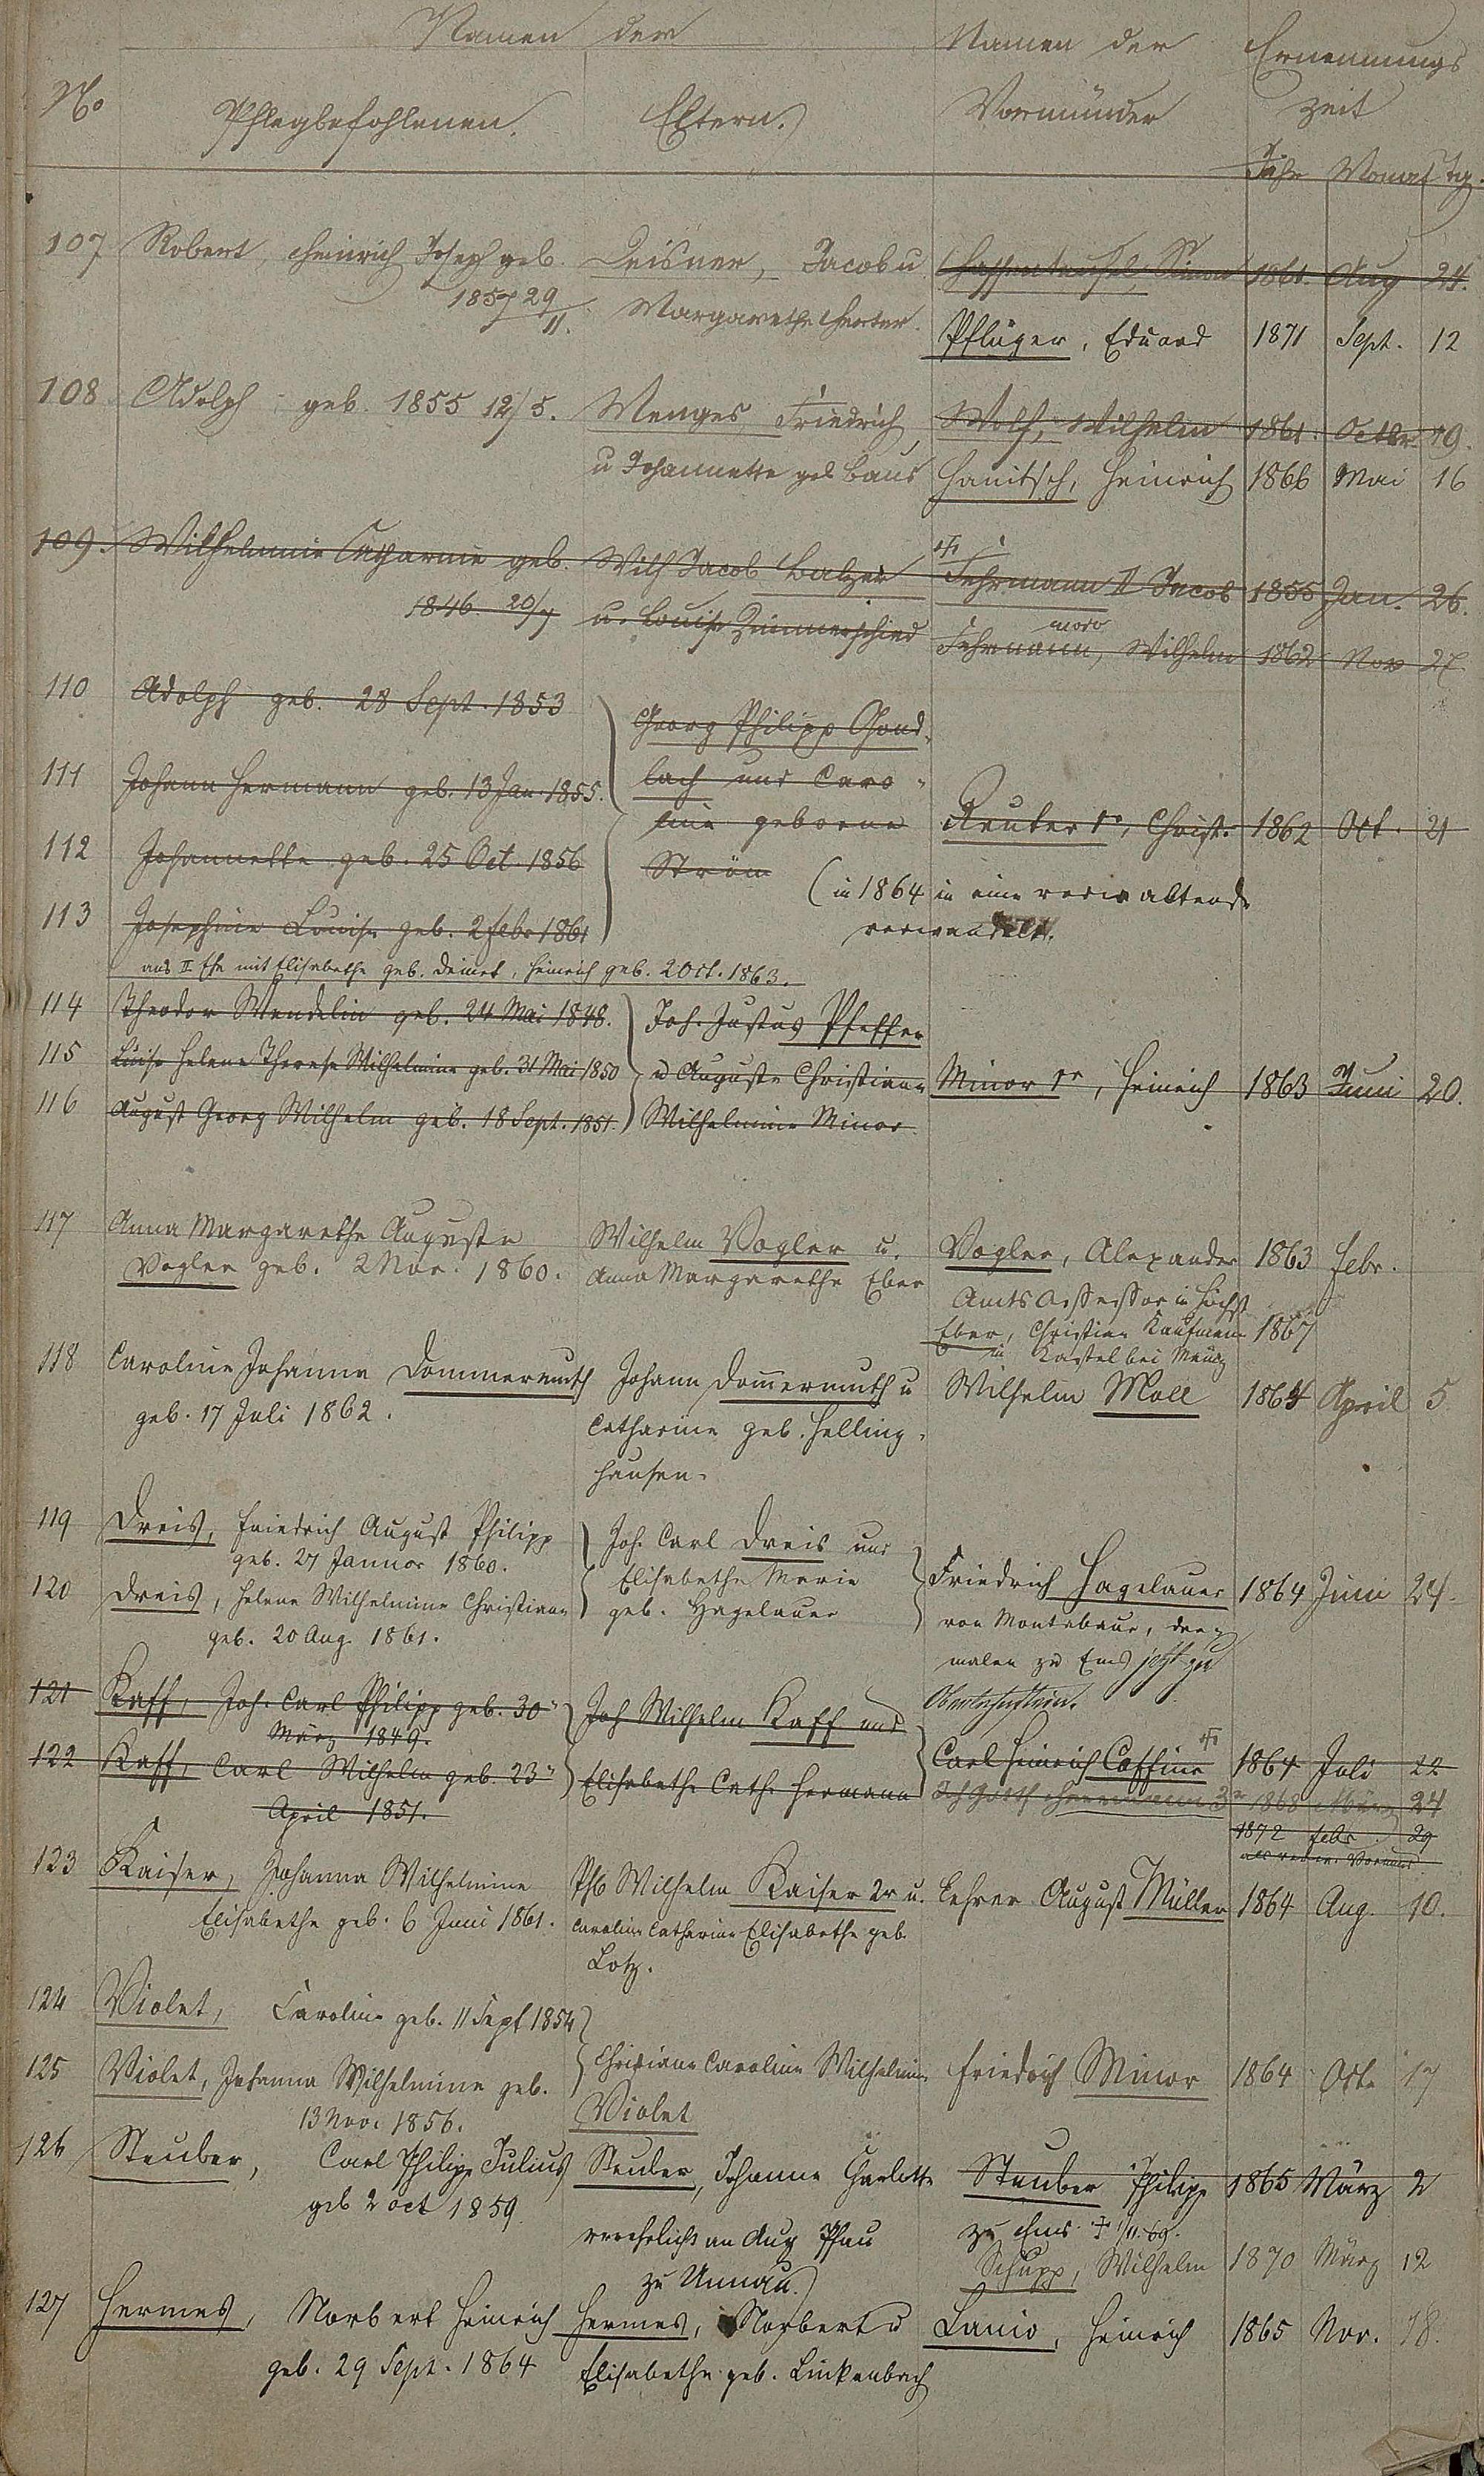 Namen der
Namen der Ernennungs
No Pflegbefohlenen. Eltern. Vormünder zeit
Jahr Monat Tag.
107 Robert, Heinrich Joseph geb. Deisner, Jacob u Simon 1861. Aug 24.
1857 29/11. Margarethe Herter.
Pflüger, Eduard 1871 Sept. 12
108 Adolph geb. 1855 12/5. Wenges Friedrich, Wolf, Wilhelm 1861. Octbr. 19.
u Johannette geb Baus Hanitsch, Heinrich 1866 Mai 16
109. Wilhelmine Catharine geb. Wilh Jacob Balzer Fehrmann Jacob 1855 Jan. 26.
1846 20/7 u. Louise Zimmerschied
modo
Fehrmann, Wilhelm 1862 Nov 27
110 Adolph geb. 28 Sept. 1853
Georg Philipp Gond-
111 Johann Hermann geb. 13 Jan. 1855. lach und Caro-
line geborene Reuter 1r, Christ. 1862 Oct. 21
112 Johannette geb. 25 Oct. 1856 Ström (in 1864 in eine verwaltende
113 Josephine Louise geb. 2 Febr 1861 verwandelt.
aus II Ehe mit Elisabethe geb. Deinet, Heinrich geb. 2 Oct. 1863.
114 Theodor Wendelin geb. 24 Mai 1848. Joh. Justus Pfeffer
115 Luise Helene Therese Wilhelmine geb. 31 Mai 1850 u Auguste Christiane Minor 1r, Heinrich 1863 Juni 20.
116 August Georg Wilhelm geb. 18 Sept. 1851. Wilhelmine Minor
117 Anna Margarethe Auguste Wilhelm Vogler u. Vogler, Alexander 1863 Febr.
Vogler geb. 2 Nov. 1860. Anna Margarethe Eber
Amts Assessor in Höchst
Eber, Christian Kaufmann 1867
in Kastel bei Mainz
118 Caroline Johanna Dommermuth Johann Dommermuth u Wilhelm Moll 1864 April 5
geb. 17 Juli 1862. Catharine geb. Helling-
hausen.
119 Dreis, Friedrich August Philipp Joh. Carl Dreis und
geb. 27 Januar 1860. Elisabethe Marie Friedrich Hagelauer 1864 Juni 24.
120 Dreis, Helene Wilhelmine Christiane geb. Hagelauer von Montabaur, der-
geb. 20 Aug. 1861. malen zu Ems jetzt zu
Oberlahnstein.
121 Kaff, Joh. Carl Philipp geb. 30n Joh Wilhelm Kaff und
März 1849.
122 Kaff, Carl Wilhelm geb. 23n Elisabethe Cath. Hermann Carl Heinrich Caffine 1864 Juli 22
April 1851. Hermann 3r 1868 März 24
1872 Febr. 29
123 Kaiser, Johanna Wilhelmine Phlp Wilhelm Kaiser 2r u. Lehrer August Müller 1864 Aug. 10.
Elisabethe geb. 6 Juni 1861. Caroline Catharine Elisabethe geb.
Lotz.
124 Violet, Caroline geb. 11 Sept 1854
125 Violet, Johanna Wilhelmine geb. Christiane Caroline Wilhelmine Friedrich Minor 1864 Octb. 17
13 Nov. 1856. Violet
126 Steuber, Carl Philipp Julius Steuber, Johanne Charlotte Steuber Philipp 1865 März 2
geb 2 Oct 1859. verehelicht an Aug Pfau zu Ems † 1/11. 69.
zu Unnau. Schupp, Wilhelm 1870 März 12
127 Hermes, Norbert Heinrich Hermes, Norbert u Lanio, Heinrich 1865 Nov. 18.
geb. 29 Sept. 1864 Elisabethe geb. Linkenbach